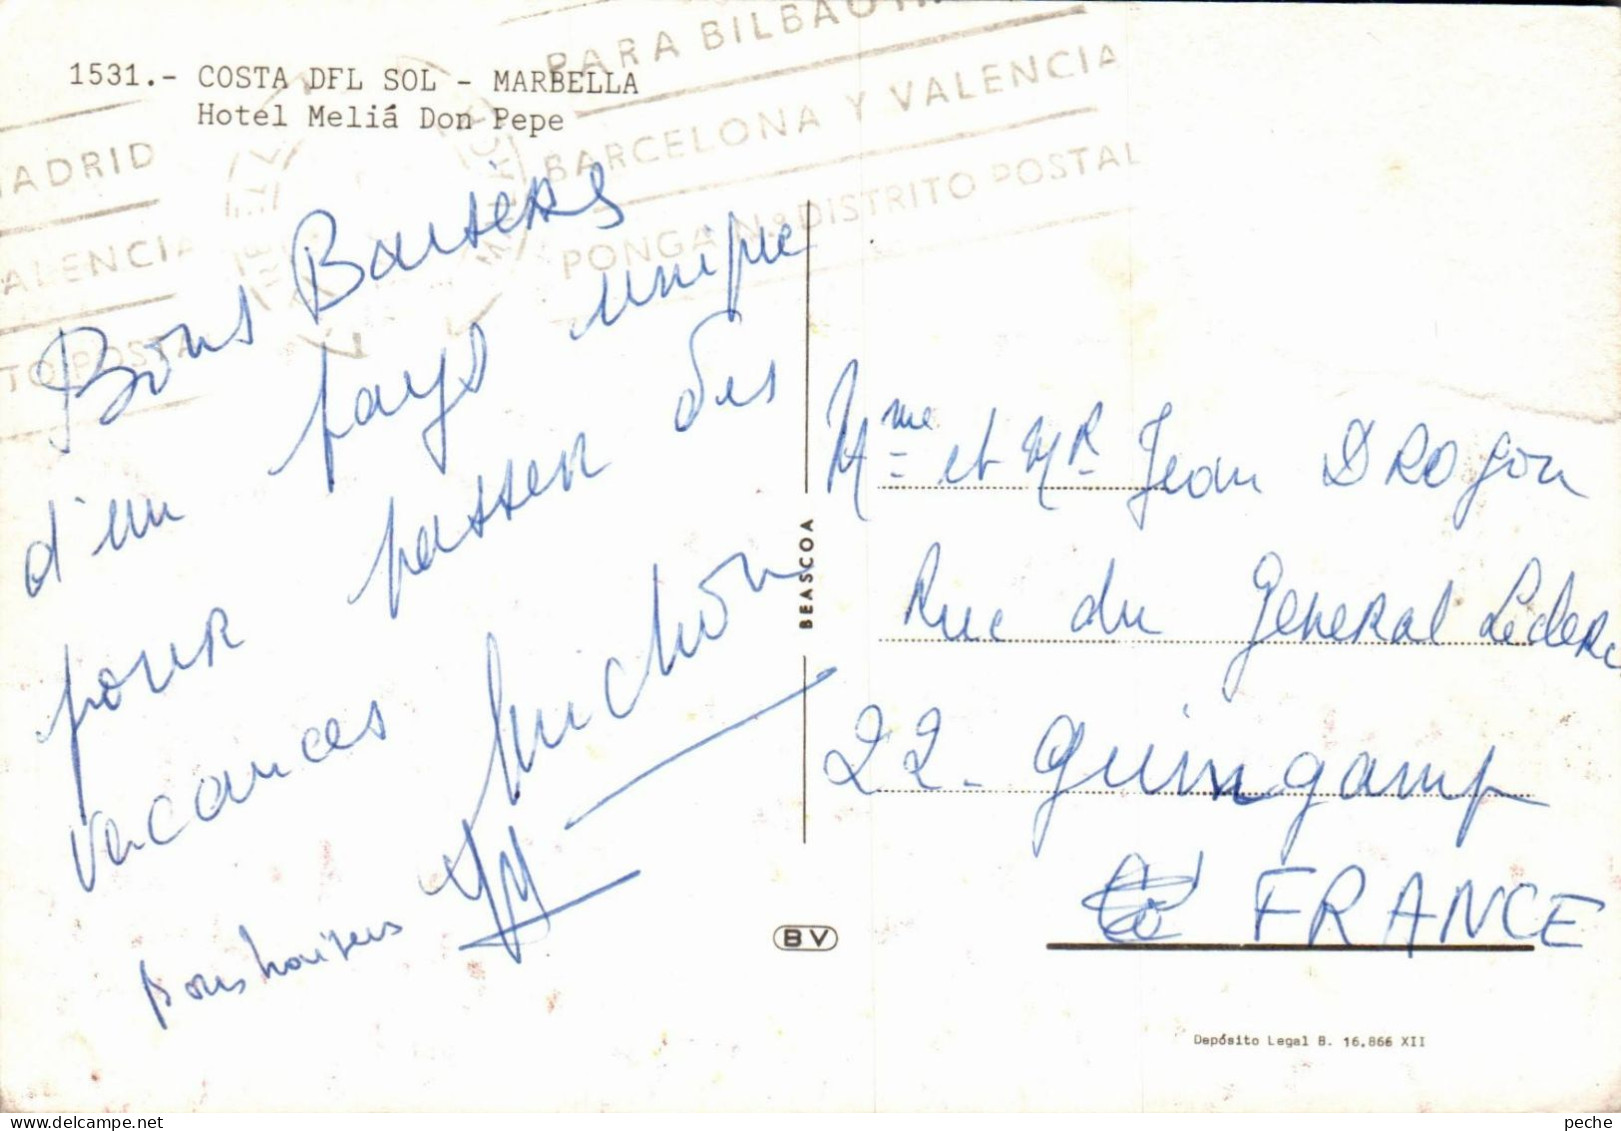 PARA BILBAO
1531.- COSTA DFL SOL - MARBELLA
Hotel Meliá Don Pepe
BARCELONA Y VALENCIA
PONGA Nº DISTRITO POSTAL
MADRID
VALENCIA
TO POSTA
Bons Baisers
d'un pays unique
pour passer des
vacances
bons baisers
BEASCOA
BV
Mme et MR Jean DROgon
Rue du General Leclerc
22. Guingamp
FRANCE
Depósito Legal B. 16.866 XII
peche